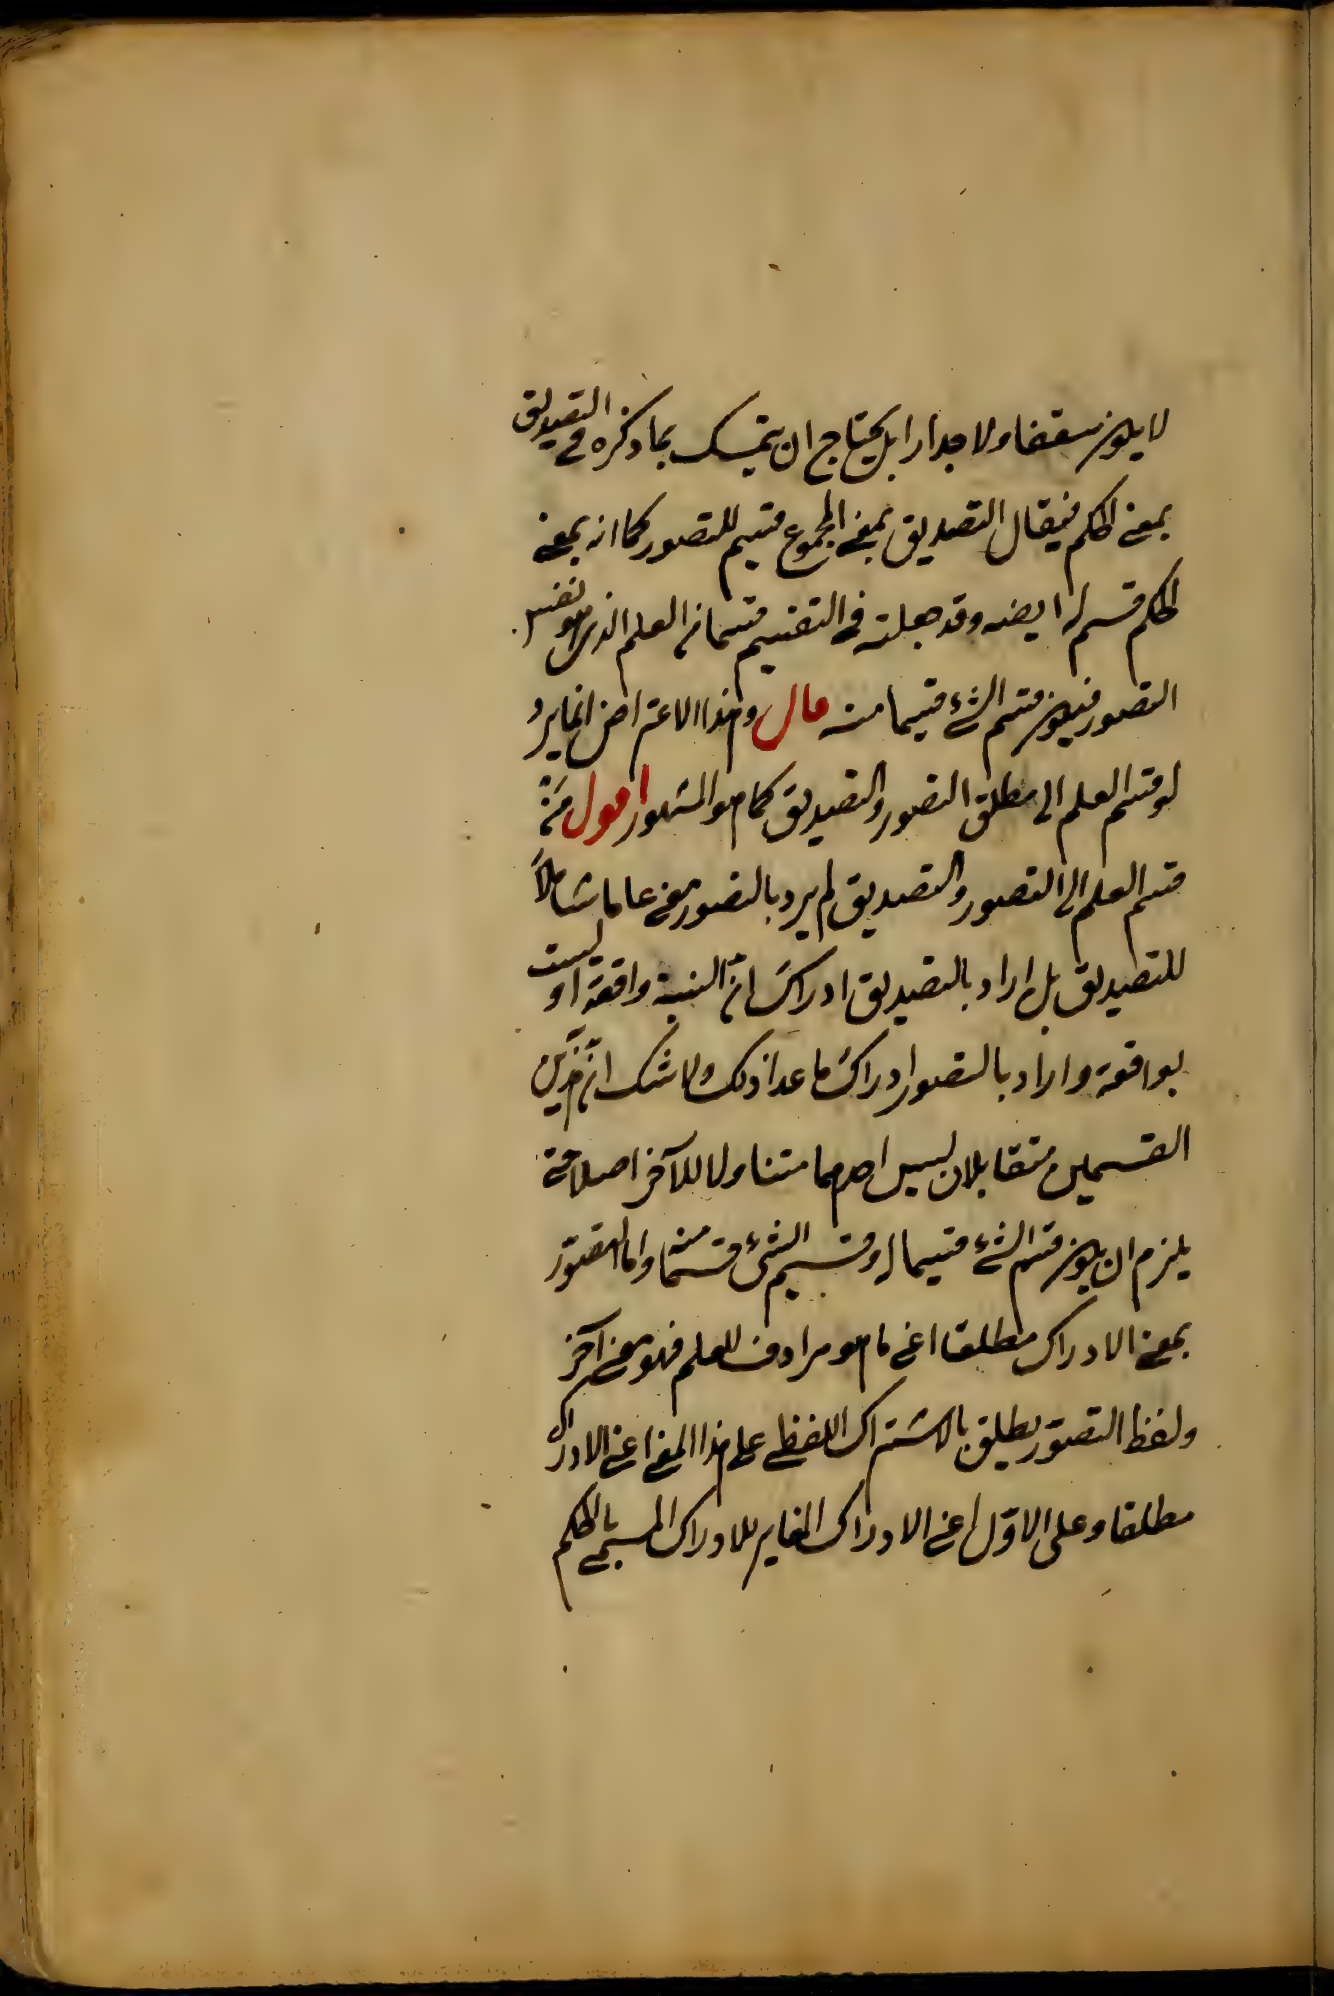 لا يكون سقفا ولا جدارا بل يحتاج ان يتمسك بما ذكره في التصديق
بمعنى الحكم فيقال التصديق بمعنى المجموع قسيم للتصور كما انه بمعنى
الحكم قسيم له ايضه وقد جعلته في التقسيم قسما من العلم الذي هو نفس
التصور فيكون قسيم الشئ قسما منه قال وهذا الاعتراض انما يرد
لو قسم العلم الى مطلق التصور والتصديق كما هو المشهور اقول من
قسم العلم الى التصور والتصديق لم يرد بالتصور معنى عاما شاملاً
للتصديق بل اراد بالتصديق ادراك انّ النسبة واقعة او ليست
بواقعة واراد بالتصور ادراك ما عدا ذلك ولا شك انّ هذين
القسمين متقابلان ليس احدهما متناولا للآخر اصلا حتى
يلزم ان يكون قسم الشئ قسيما له وقسيم الشئ قسما منه واما التصوّر
بمعنى الادراك مطلقا اعني ما هو مرادف للعلم فهو معنى آخر
ولفظ التصوّر يطلق بالاشتراك اللفظي على هذا المعنى اعني الادراك
مطلقا وعلى الاوّل اعني الادراك المغاير للادراك المسمى بالحكم